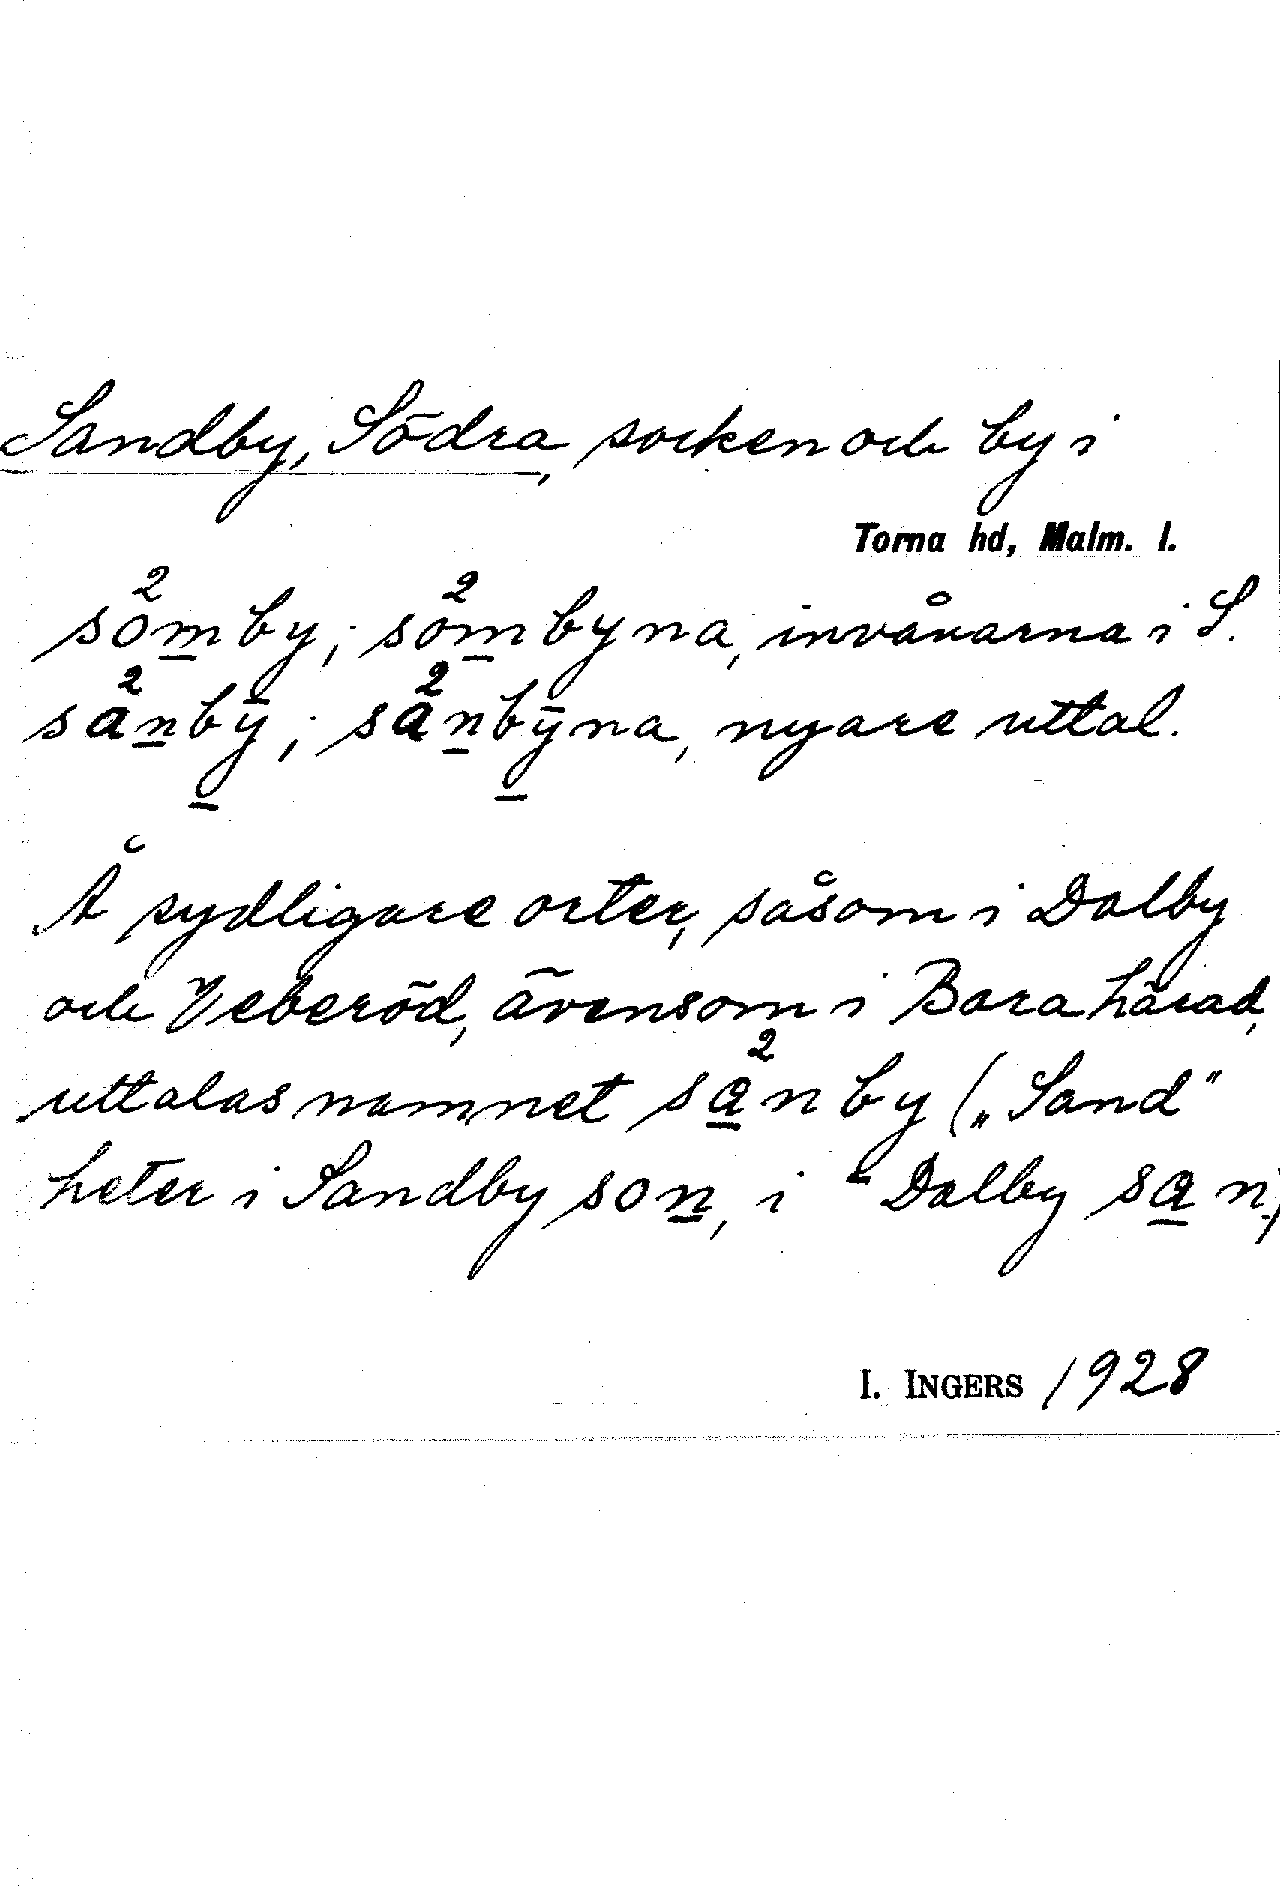 Sandby, Södra, socken och by i
Torna hd, Malm. l.
so²m̲by; so²m̲byna, invånarna i S.
sa²n̲bȳ̲; sa²n̲bȳ̲na, nyare uttal.
Å sydligare orter, såsom i Dalby
och Veberöd, ävensom i Bara härad,
uttalas namnet sa̲²nby („Sand"
heter i Sandby son̲, i Dalby sa̲n.)
I. INGERS 1928